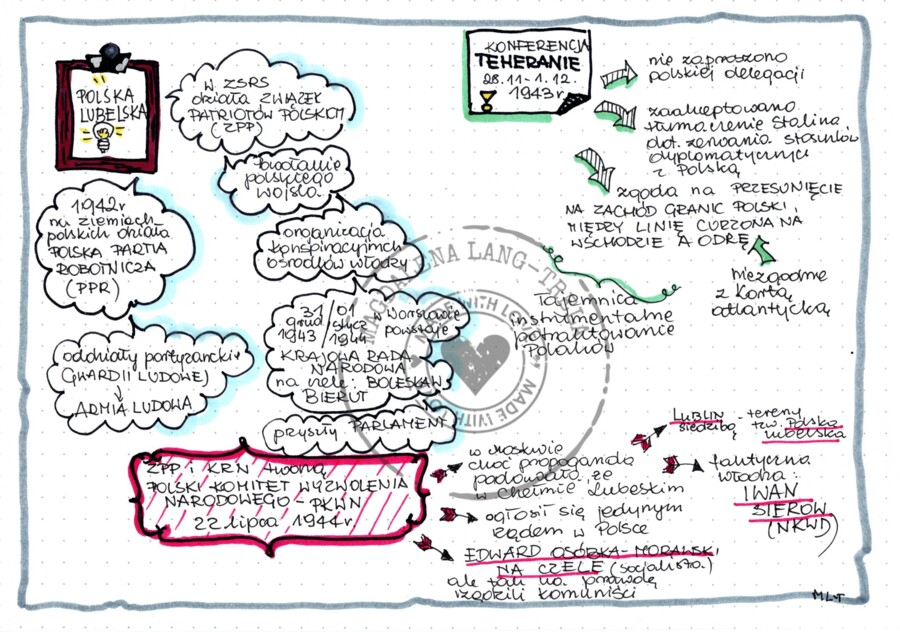 POLSKA
LUBELSKA
W ZSRS
działa ZWIĄZEK
PATRIOTÓW POLSKICH
(ZPP)
powołanie
polskiego
wojska
organizacja
konspiracyjnych
ośrodków władzy
1942r
na ziemiach
polskich działa
POLSKA PARTIA
ROBOTNICZA
(PPR)
oddziały partyzanckie
GWARDII LUDOWEJ
↓
ARMIA LUDOWA
31 / 01 w Warszawie
grud / stycz powstaje
1943 / 1944
KRAJOWA RADA
NARODOWA
na czele: BOLESŁAW
BIERUT
przyszły PARLAMENT
ZPP i KRN tworzą
POLSKI KOMITET WYZWOLENIA
NARODOWEGO - PKWN
22 lipca 1944r
KONFERENCJA
TEHERANIE
28.11-1.12.
1943r
nie zaproszono
polskiej delegacji
zaakceptowano
tłumaczenie Stalina
dot. zerwania stosunków
dyplomatycznych
z Polską
zgoda na PRZESUNIĘCIE
NA ZACHÓD GRANIC POLSKI,
MIĘDZY LINIĘ CURZONA NA
WSCHODZIE A ODRĘ
niezgodne
z Kartą
atlantycką
Tajemnica
instrumentalne
potraktowanie
Polaków
w Moskwie
choć propaganda
podawała że
w Chełmie Lubelskim
ogłosił się jedynym
rządem w Polsce
EDWARD OSÓBKA-MORAWSKI
NA CZELE (socjalista)
ale tak na prawdę
rządzili komuniści
LUBLIN - tereny
siedzibą tzw. Polska
lubelska
faktyczna
władza:
IWAN
SIEROW
(NKWD)
MAGDALENA LANG-TRELA
MADE WITH LOVE
MADE WITH LOVE
MLT